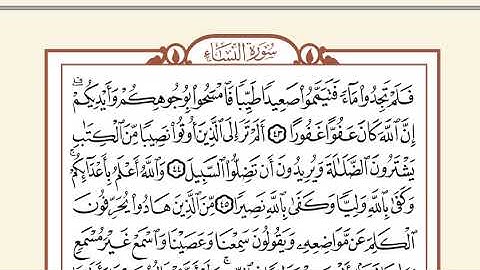 سُورَةُ النِّسَاءِ
فَلَمْ تَجِدُوا۟ مَآءً فَتَيَمَّمُوا۟ صَعِيدًا طَيِّبًا فَٱمْسَحُوا۟ بِوُجُوهِكُمْ وَأَيْدِيكُمْ ۗ
إِنَّ ٱللَّهَ كَانَ عَفُوًّا غَفُورًا ٤٣ أَلَمْ تَرَ إِلَى ٱلَّذِينَ أُوتُوا۟ نَصِيبًا مِّنَ ٱلْكِتَٰبِ
يَشْتَرُونَ ٱلضَّلَٰلَةَ وَيُرِيدُونَ أَن تَضِلُّوا۟ ٱلسَّبِيلَ ٤٤ وَٱللَّهُ أَعْلَمُ بِأَعْدَآئِكُمْ ۚ
وَكَفَىٰ بِٱللَّهِ وَلِيًّا وَكَفَىٰ بِٱللَّهِ نَصِيرًا ٤٥ مِّنَ ٱلَّذِينَ هَادُوا۟ يُحَرِّفُونَ
ٱلْكَلِمَ عَن مَّوَاضِعِهِۦ وَيَقُولُونَ سَمِعْنَا وَعَصَيْنَا وَٱسْمَعْ غَيْرَ مُسْمَعٍ